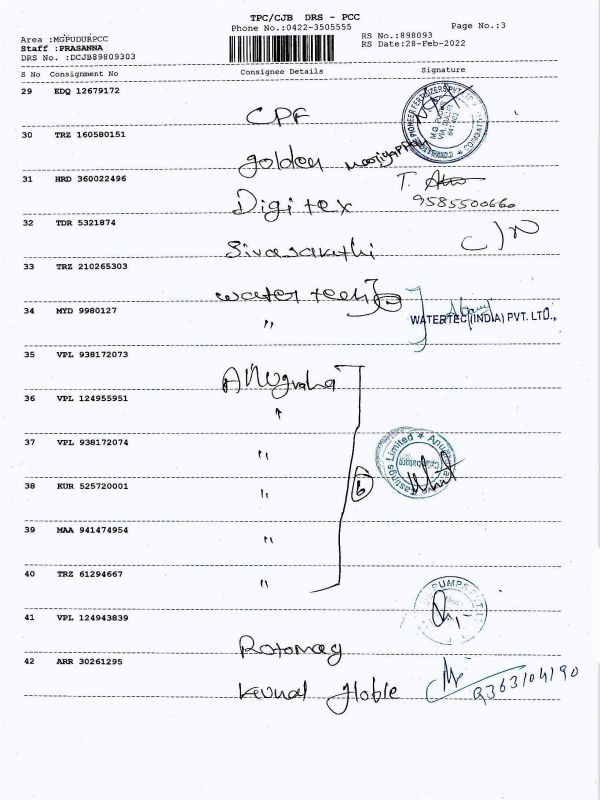 TPC/CJB DRS - PCC
Phone No.:0422-3505555
Page No.:3
Area :MGPUDURPCC
RS No.:898093
Staff :PRASANNA
RS Date:28-Feb-2022
DRS No. :DCJB89809303
S No Consignment No Consignee Details Signature
29 EDQ 12679172
CPF
30 TRZ 160580151
golden
31 HRD 360022496
T.
Digitex
9585500660
32 TDR 5321874
Sivasakthi
C/N
33 TRZ 210265303
water tech
34 MYD 9980127
WATERTEC (INDIA) PVT. LTD.,
"
35 VPL 938172073
Anugraha
36 VPL 124955951
"
37 VPL 938172074
"
38 KUR 525720001
6
"
39 MAA 941474954
"
40 TRZ 61294667
"
41 VPL 124943839
Rotomag
42 ARR 30261295
9363104190